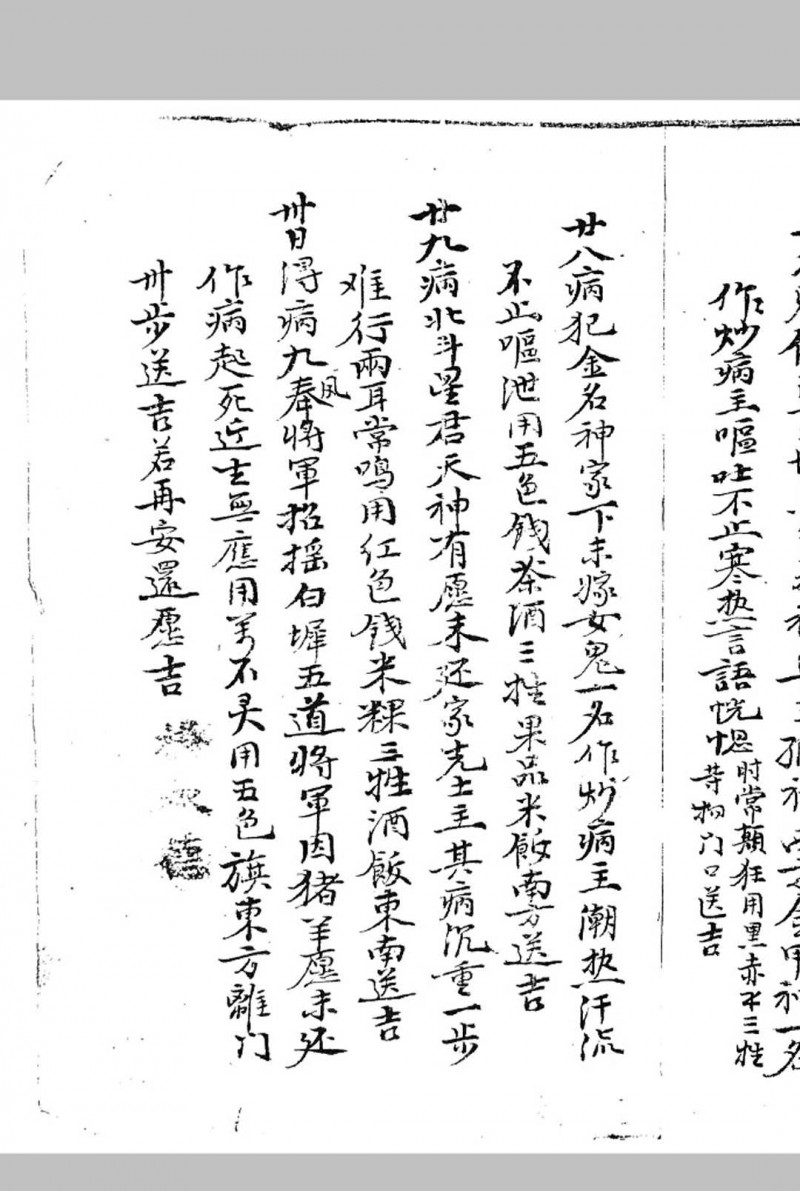 作炒病主嘔吐不止寒热言語恍惚时常顛狂用黑赤不三牲
芽相门口送吉
廿八病犯金名神家下未嫁女鬼一名作炒病主潮热汗流
不止嘔泄用五色钱茶酒三牲果品米飯南方送吉
廿九病北斗星君天神有愿未还家先土主其病沉重一步
难行兩耳常鳴用红色钱米粿三牲酒飯東南送吉
卅日得病九奉将軍招摇白墀五道将軍因猪羊愿未还
風
作病起死近生無應用萬不灵用五色旗東方離门
卅步送吉若再安還愿吉